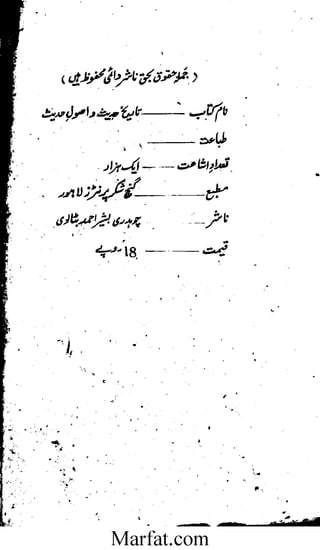 ( جملہ حقوق بحق ناشر دائمی محفوظ ہیں )
نام کتاب ——— تاریخ حدیث و اصول حدیث
طباعت ———
تعداد اشاعت ——— ایک ہزار
مطبع ——— گنج شکر پرنٹرز لاہور
ناشر ——— چوہدری بشیر احمد بٹالوی
قیمت ——— 18 روپے
Marfat.com